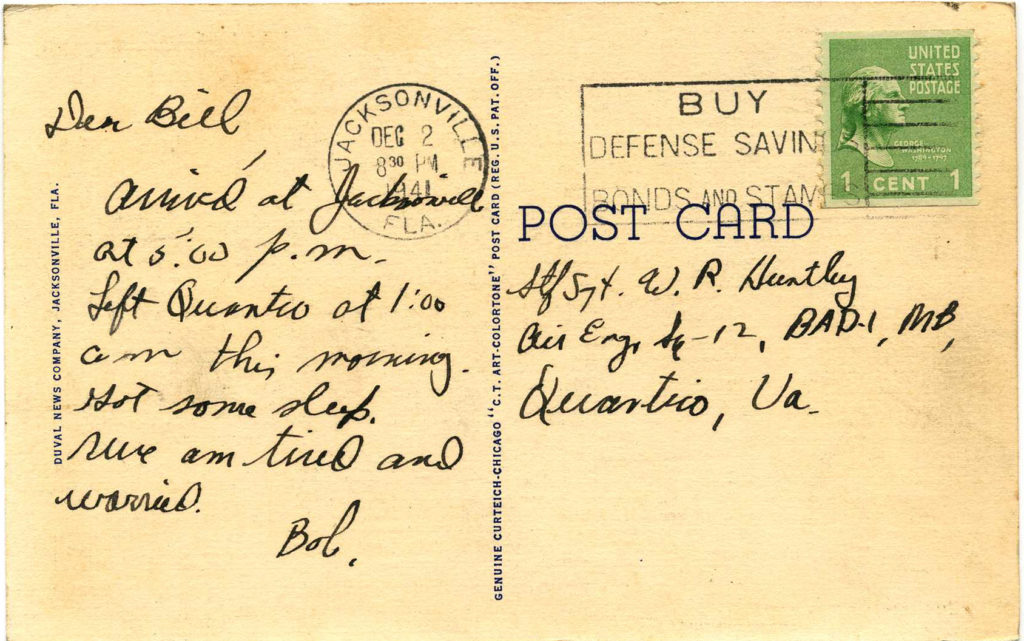 Dear Bill
Arrived at Jacksonville
at 5:00 p.m.
Left Quantico at 1:00
am this morning.
Got some sleep.
Sure am tired and
worried.
Bob.
JACKSONVILLE
DEC 2
8 30 PM
1941
FLA.
BUY
DEFENSE SAVIN
BONDS AND STAMPS
UNITED
STATES
POSTAGE
GEORGE
WASHINGTON
1789-1797
1 CENT 1
POST CARD
Stf Sgt. W. R. Huntley
Air Eng. Sq-12, BAD-1, MB,
Quantico, Va.
DUVAL NEWS COMPANY, JACKSONVILLE, FLA.
GENUINE CURTEICH-CHICAGO "C.T. ART-COLORTONE" POST CARD (REG. U.S. PAT. OFF.)